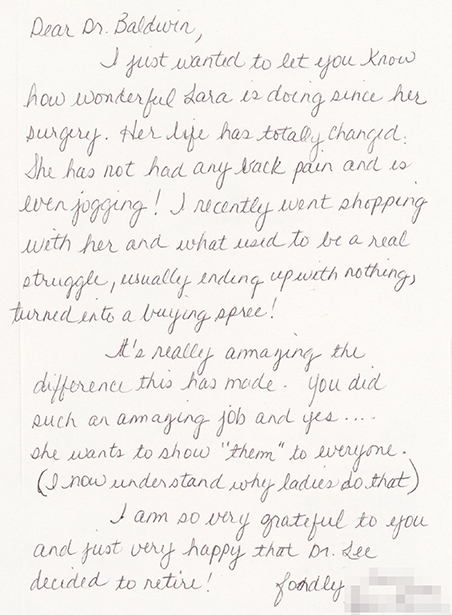 Dear Dr. Baldwin,
I just wanted to let you know
how wonderful Sara is doing since her
surgery. Her life has totally changed.
She has not had any back pain and is
even jogging! I recently went shopping
with her and what used to be a real
struggle, usually ending up with nothing,
turned into a buying spree!
It's really amazing the
difference this has made. You did
such an amazing job and yes....
she wants to show "them" to everyone.
(I now understand why ladies do that)
I am so very grateful to you
and just very happy that Dr. Lee
decided to retire! fondly